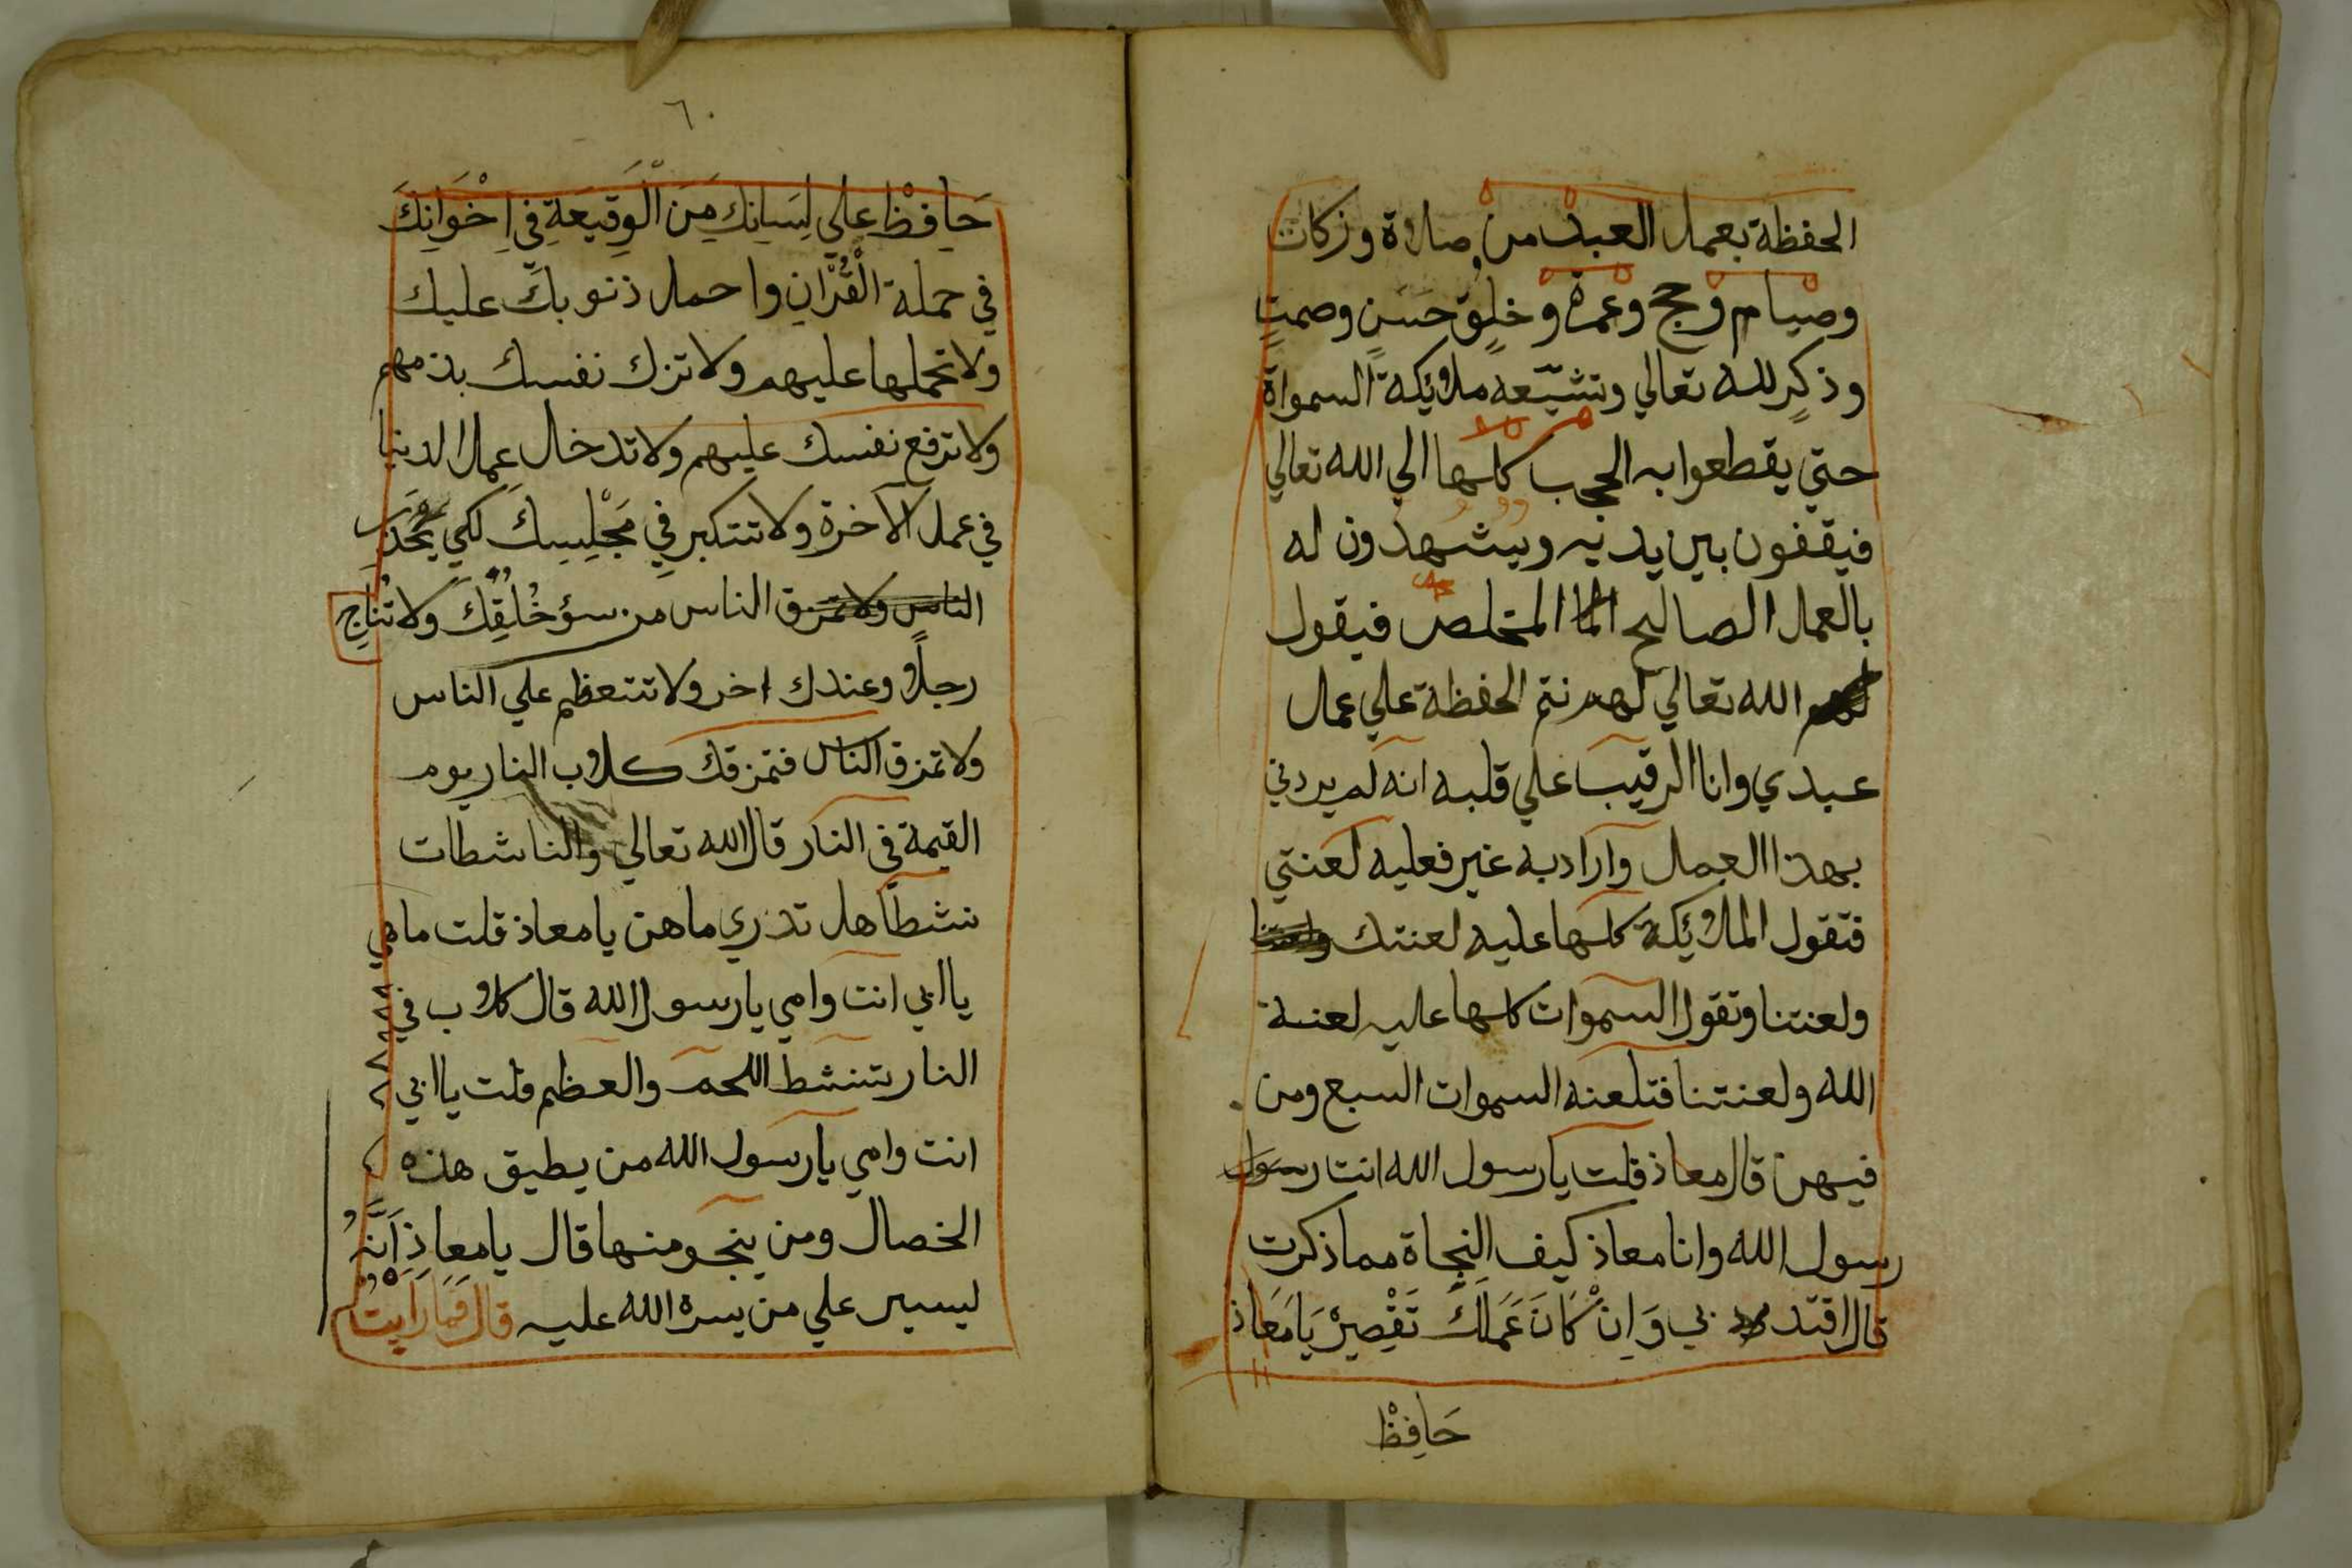 الحفظة بعمل العبد من صلاة وزكات
وصيام وحج وعمرة وخلق حسن وصمت
وذكر لله تعالي وتشيعه ملائكة السمواة
حتي يقطعوا به الحجب كلها الي الله تعالي
فيقفون بين يديه ويشهدون له
بالعمل الصالح المخلص فيقول
الله تعالي لهم نتم الحفظة علي عمل
عبدي وانا الرقيب علي قلبه انه لم يردني
بهذا العمل واراد به غير فعليه لعنتي
فتقول الملائكة كلها عليه لعنتك
ولعنتنا وتقول السموات كلها عليه لعنة
الله ولعنتنا فتلعنه السموات السبع ومن
فيهن قال معاذ قلت يا رسول الله انت رسول
رسول الله وانا معاذ كيف النجاة مما ذكرت
قال اقتد بي وَاِنْ كَانَ عَمَلَكَ تَقْصِيْرْ يَا مَعَاذ
حَافِظْ
٦٠
حَافِظْ علي لِسَانِكَ مِنَ الْوَقِيعَةِ فِي اِخْوَانِكَ
في حملة الْقُرْانِ واحمل ذنوبك عليك
ولا تحملها عليهم ولا تزك نفسك بذمهم
ولا ترفع نفسك عليهم ولا تدخل عمل الدنيا
في عمل الآخرة ولا تتكبر فِي مَجْلِسِكَ لكي يَحْذَر
الناس من سؤ خُلُقِكَ ولا تُنَاج
رجلاً وعندك اخر ولا تتعظم علي الناس
ولا تمزق الناس فتمزقك كلاب النار يوم
القيمة في النار قال الله تعالي والناشطات
نشطا هل تدري ما هن يا معاذ قلت ما هي
يا ابي انت وامي يا رسول الله قال كلاب في
النار يتنشط اللحم والعظم قلت يا ابي
انت وامي يا رسول الله من يطيق هذه
الخصال ومن ينجو منها قال يا معاذ اَنَّهُ
ليسير علي من يسره الله عليه قال فَمَا رَاَيْتُ